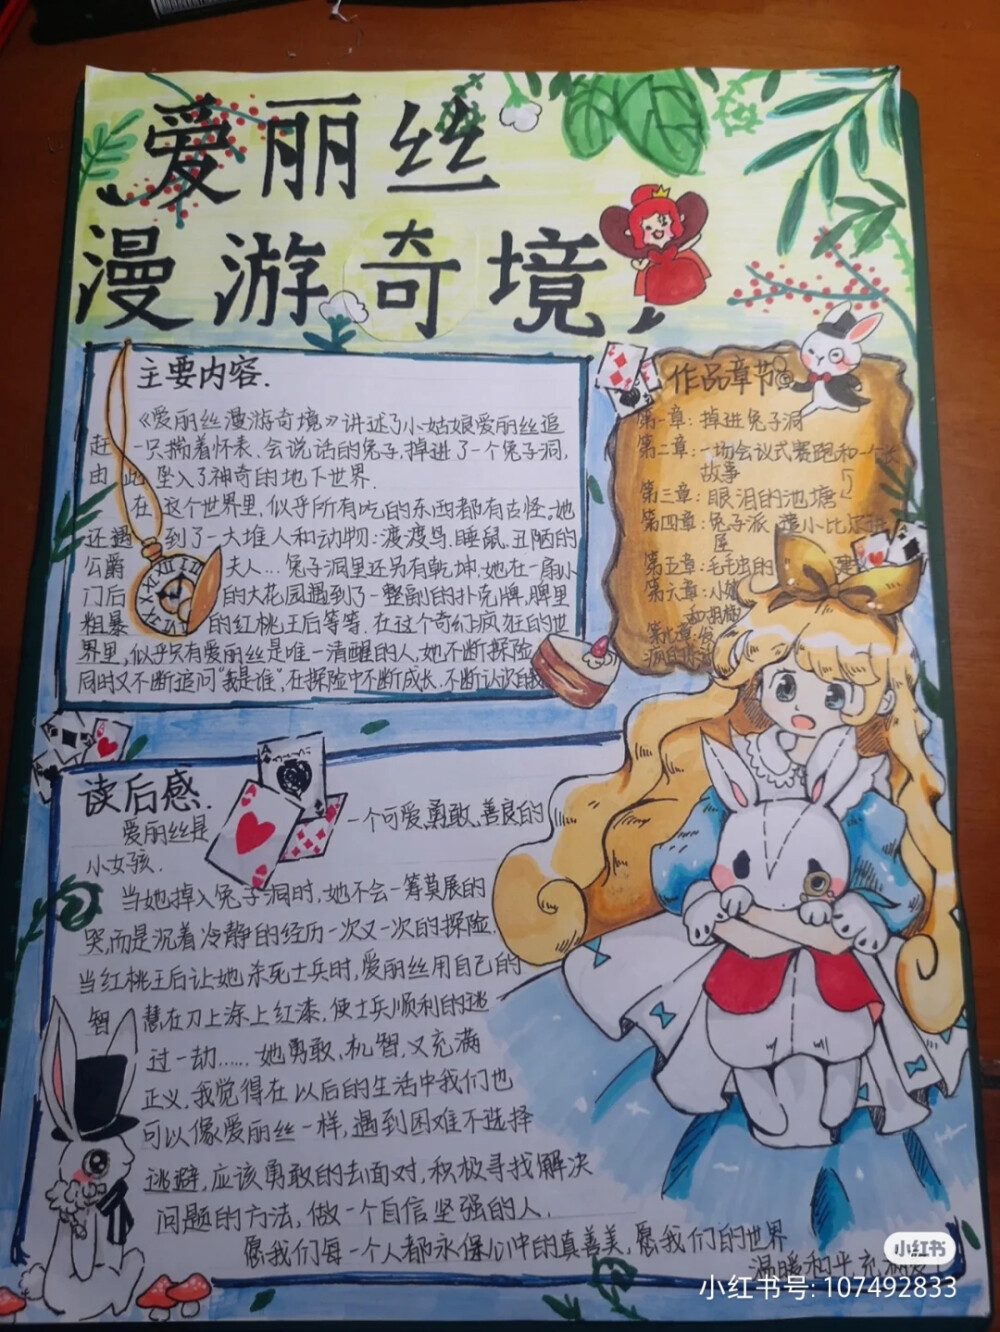 爱丽丝
漫游奇境
主要内容.
《爱丽丝漫游奇境》讲述了小姑娘爱丽丝追
赶一只揣着怀表、会说话的兔子,掉进了一个兔子洞,
由此坠入了神奇的地下世界.
在这个世界里,似乎所有吃的东西都有古怪。她
还遇到了一大堆人和动物:渡渡鸟、睡鼠、丑陋的
公爵夫人...兔子洞里还另有乾坤,她在一扇小
门后的大花园遇到了一整副的扑克牌,牌里
粗暴的红桃王后等等.在这个奇幻疯狂的世
界里,似乎只有爱丽丝是唯一清醒的人,她不断探险
同时又不断追问"我是谁",在探险中不断成长、不断认识
作品章节
第一章:掉进兔子洞
第二章:一场会议式赛跑和一个长
故事
第三章:眼泪的池塘
第四章:兔子派遣小比尔进
屋
第五章:毛毛虫的
第六章:小
和胡椒
读后感.
爱丽丝是一个可爱、勇敢、善良的
小女孩.
当她掉入兔子洞时,她不会一筹莫展的
哭,而是沉着冷静的经历一次又一次的探险.
当红桃王后让她杀死士兵时,爱丽丝用自己的
智慧在刀上涂上红漆,使士兵顺利的逃
过一劫......她勇敢,机智,又充满
正义.我觉得在以后的生活中我们也
可以像爱丽丝一样,遇到困难不选择
逃避,应该勇敢的去面对,积极寻找解决
问题的方法,做一个自信坚强的人.
愿我们每一个人都永保心中的真善美,愿我们的世界
温暖和平,充满爱!
小红书
小红书号: 107492833